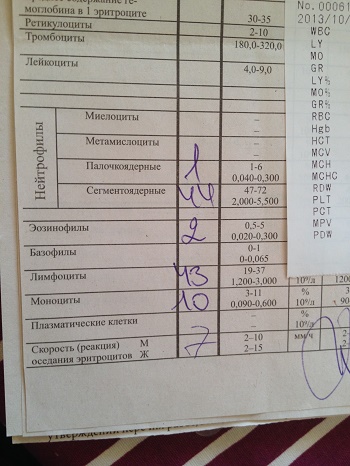 моглобина в 1 эритроците 30-35
Ретикулоциты 2-10
Тромбоциты 180,0-320,0
Лейкоциты 4,0-9,0
Нейтрофилы
Миелоциты –
Метамиелоциты –
Палочкоядерные 1 1-6
0,040-0,300
Сегментоядерные 44 47-72
2,000-5,500
Эозинофилы 2 0,5-5
0,020-0,300
Базофилы 0-1
0-0,065
Лимфоциты 43 19-37
1,200-3,000 10⁹/л 1200
Моноциты 10 3-11 % 3
0,090-0,600 10⁹/л 90
Плазматические клетки – %
– 10⁹/л
Скорость (реакция) М 7 2–10 мм/ч 2-
оседания эритроцитов Ж 2–15 2-
No.00061
2013/10/
WBC
LY
MO
GR
LY%
MO%
GR%
RBC
Hgb
HCT
MCV
MCH
MCHC
RDW
PLT
PCT
MPV
PDW